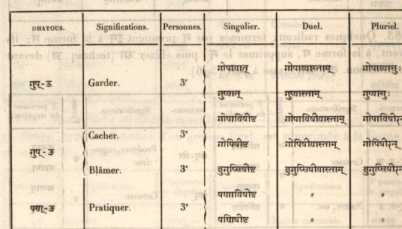 DHATOUS. Significations. Personnes. Singulier. Duel. Pluriel.
गोपाय्यात् गोपाय्यास्ताम् गोपाय्यासुः
गुप्-ऊ Garder. 3ᵉ गुप्यात् गुप्यास्ताम् गुप्यासुः
गोपायिषीष्ट
Cacher. 3ᵉ गोपिषीष्ट गोपिषीयास्ताम् गोपिषीरन्
गुप्-ङ
Blâmer. 3ᵉ जुगुप्सिषीष्ट
पणायिषीष्ट " "
पण्-ङ Pratiquer. 3ᵉ
पणिषीष्ट " "